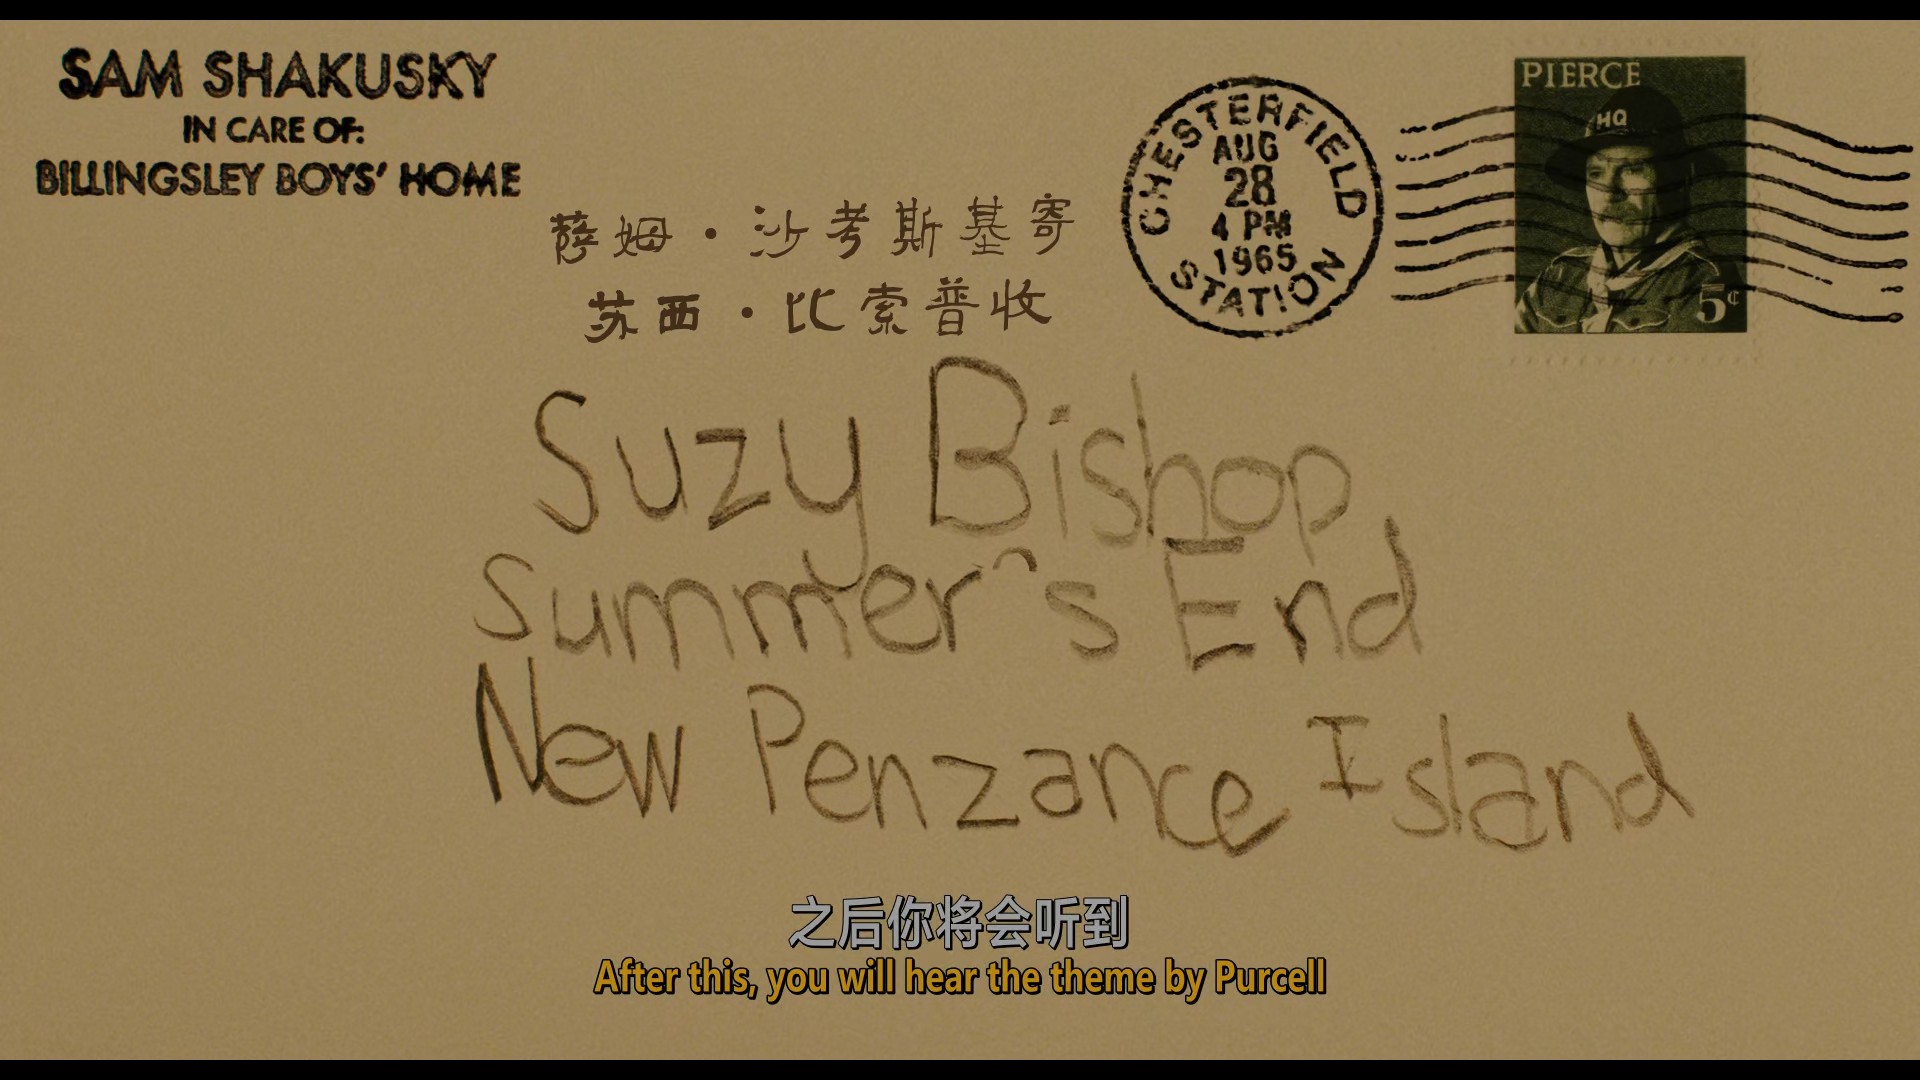 SAM SHAKUSKY
IN CARE OF:
BILLINGSLEY BOYS' HOME
萨姆·沙考斯基寄
苏西·比索普收
CHESTERFIELD
AUG
28
4 PM
1965
STATION
PIERCE
HQ
5¢
Suzy Bishop
Summer's End
New Penzance Island
之后你将会听到
After this, you will hear the theme by Purcell